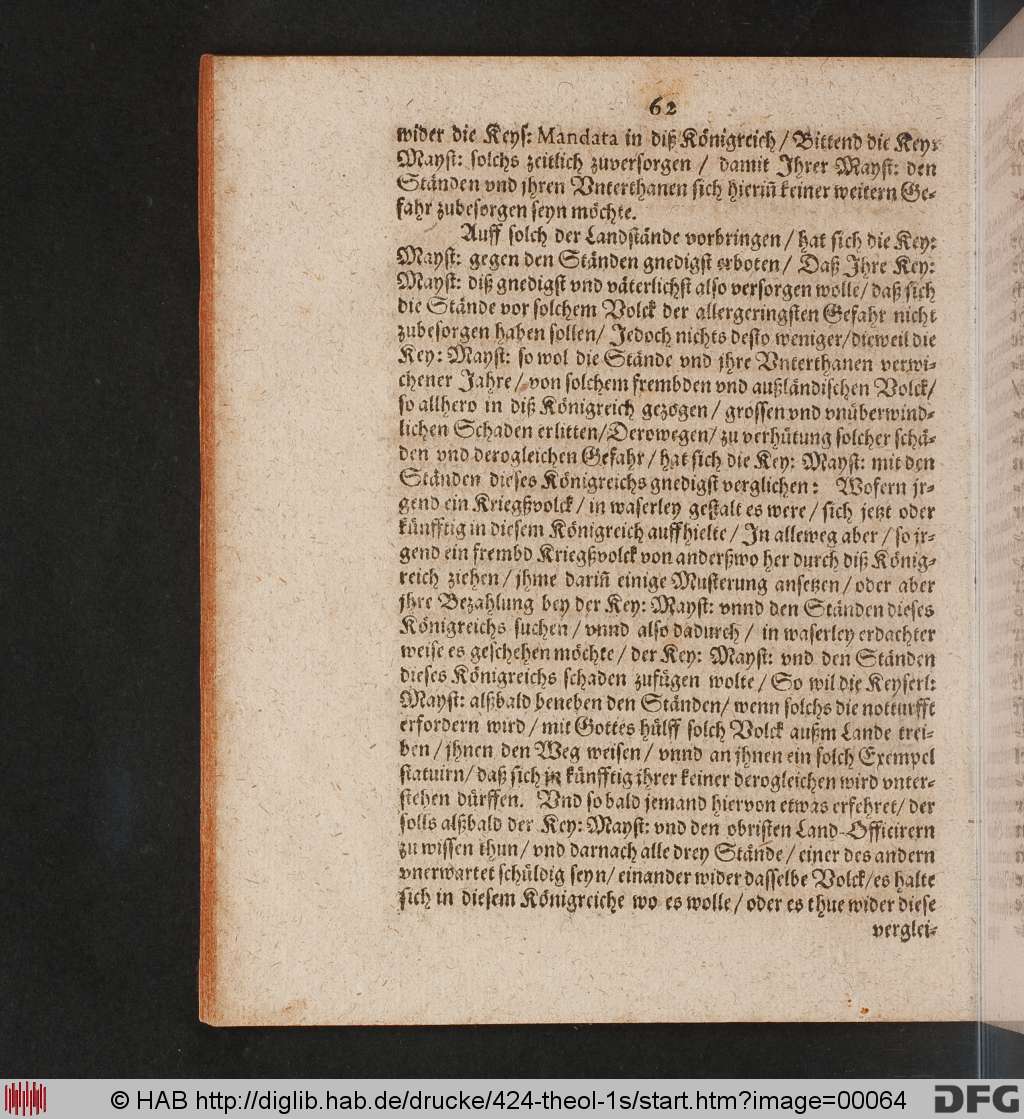 62
wider die Keyſ: Mandata in diß Königreich / Bittend die Key:
Mayſt: ſolchs zeitlich zuverſorgen / damit Jhrer Mayſt: den
Ständen vnd jhren Vnterthanen ſich hieriñ keiner weitern Ge-
fahr zubeſorgen ſeyn möchte.
Auff ſolch der Landſtände vorbringen / hat ſich die Key:
Mayſt: gegen den Ständen gnedigſt erboten / Daß Jhre Key:
Mayſt: diß gnedigſt vnd väterlichſt alſo verſorgen wolle / daß ſich
die Stände vor ſolchem Volck der allergeringſten Gefahr nicht
zubeſorgen haben ſollen / Jedoch nichts deſto weniger / dieweil die
Key: Mayſt: ſo wol die Stände vnd jhre Vnterthanen verwi-
chener Jahre / von ſolchem frembden vnd außländiſchen Volck /
ſo allhero in diß Königreich gezogen / groſſen vnd vnüberwind-
lichen Schaden erlitten / Derowegen / zu verhütung ſolcher ſchä-
den vnd derogleichen Gefahr / hat ſich die Key: Mayſt: mit den
Ständen dieſes Königreichs gnedigſt verglichen: Wofern jr-
gend ein Kriegßvolck / in waſerley geſtalt es were / ſich jetzt oder
künfftig in dieſem Königreich auffhielte / Jn alleweg aber / ſo jr-
gend ein frembd Kriegßvolck von anderßwo her durch diß König-
reich ziehen / jhme dariñ einige Muſterung anſetzen / oder aber
jhre Bezahlung bey der Key: Mayſt: vnnd den Ständen dieſes
Königreichs ſuchen / vnnd alſo dadurch / in waſerley erdachter
weiſe es geſchehen möchte / der Key: Mayſt: vnd den Ständen
dieſes Königreichs ſchaden zufügen wolte / So wil die Keyſerl:
Mayſt: alßbald beneben den Ständen / wenn ſolchs die notturfft
erfordern wird / mit Gottes hülff ſolch Volck außm Lande trei-
ben / jhnen den Weg weiſen / vnnd an jhnen ein ſolch Exempel
ſtatuirn / daß ſich in künfftig ihrer keiner derogleichen wird vnter-
ſtehen dürffen. Vnd ſo bald jemand hiervon etwas erfehret / der
ſolls alßbald der Key: Mayſt: vnd den obriſten Land-Officirern
zu wiſſen thun / vnd darnach alle drey Stände / einer des andern
vnerwartet ſchüldig ſeyn / einander wider daſſelbe Volck / es halte
ſich in dieſem Königreiche wo es wolle / oder es thue wider dieſe
verglei-
© HAB http://diglib.hab.de/drucke/424-theol-1s/start.htm?image=00064
DFG